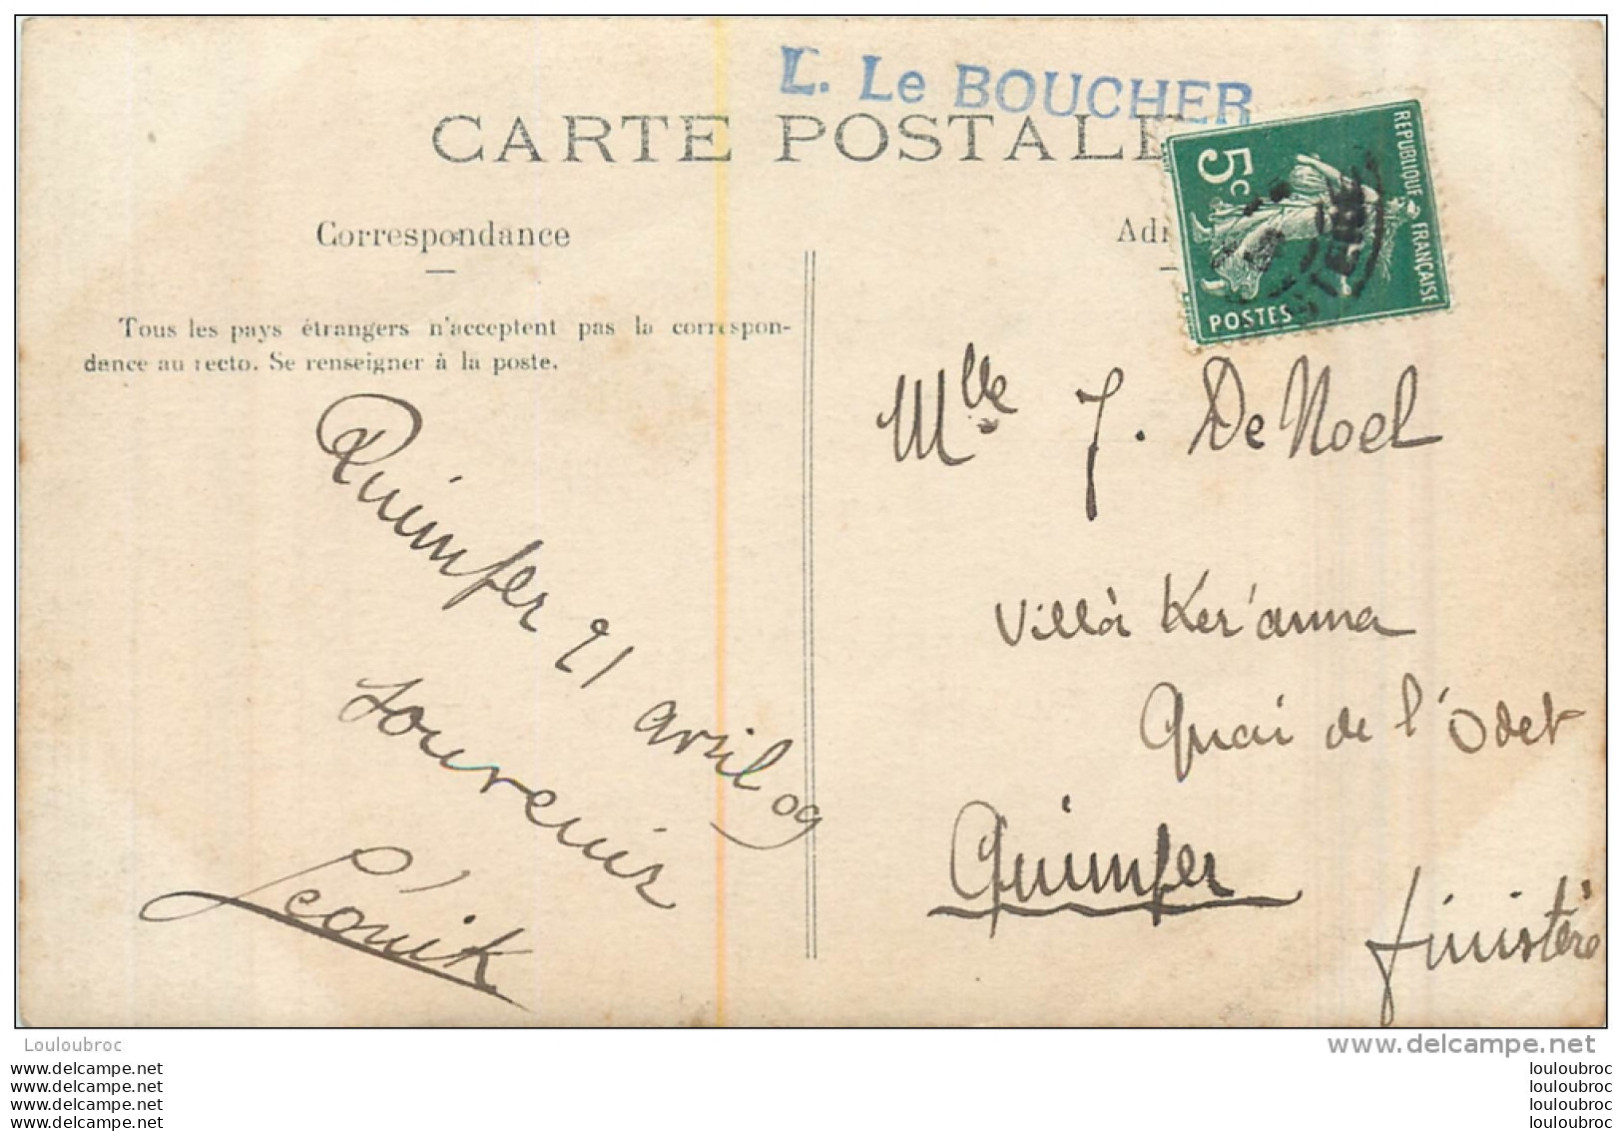 L. Le BOUCHER
CARTE POSTALE
Correspondance
Tous les pays étrangers n'acceptent pas la correspon-
dance au recto. Se renseigner à la poste.
Quimper 21 avril 09
souvenir
Léonik
REPUBLIQUE FRANÇAISE
5c
POSTES
Mlle J. De Noel
Villa Ker'anna
Quai de l'Odet
Quimper
finistère
Louloubroc
www.delcampe.net
www.delcampe.net
www.delcampe.net
www.delcampe.net
www.delcampe.net
louloubroc
louloubroc
louloubroc
louloubroc